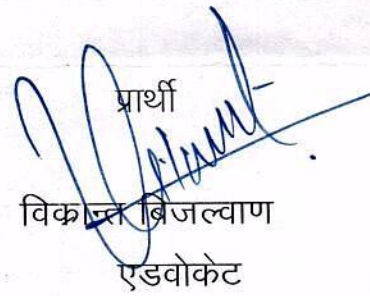 प्रार्थी
विक्रान्त बिजल्वाण
एडवोकेट